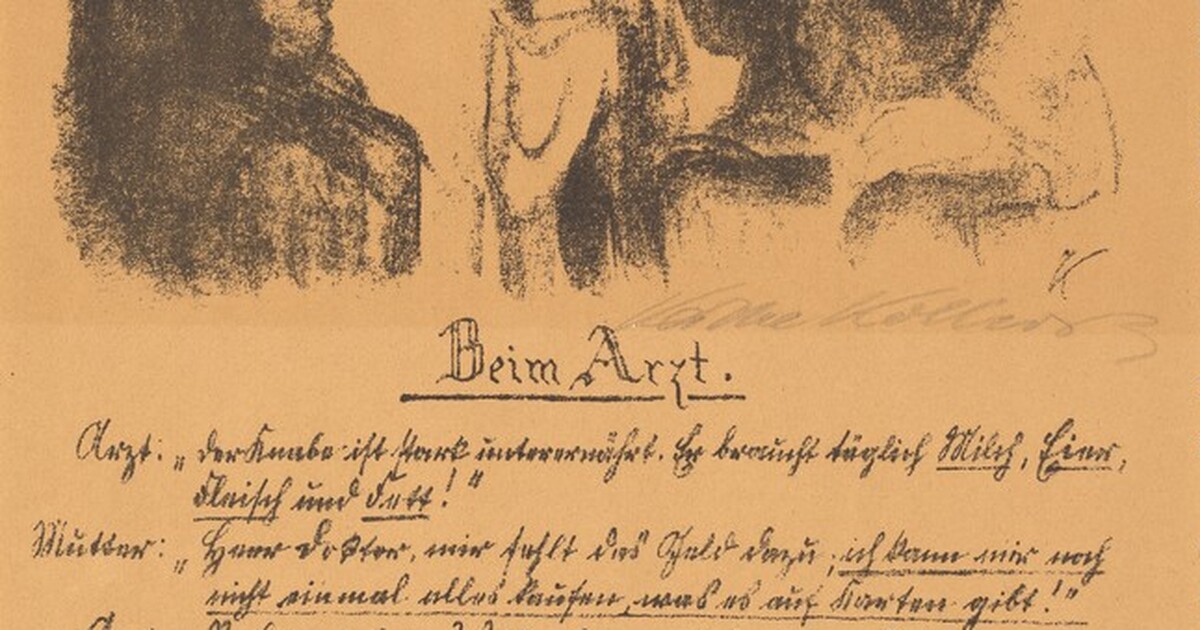 K
Käthe Kollwitz
Beim Arzt.
Arzt: „Der Knabe ist stark unterernährt. Er braucht täglich Milch, Eier,
Fleisch und Fett!"
Mutter: „Herr Doktor, mir fehlt das Geld dazu, ich kann mir noch
nicht einmal alles kaufen, was es auf Karten gibt!"